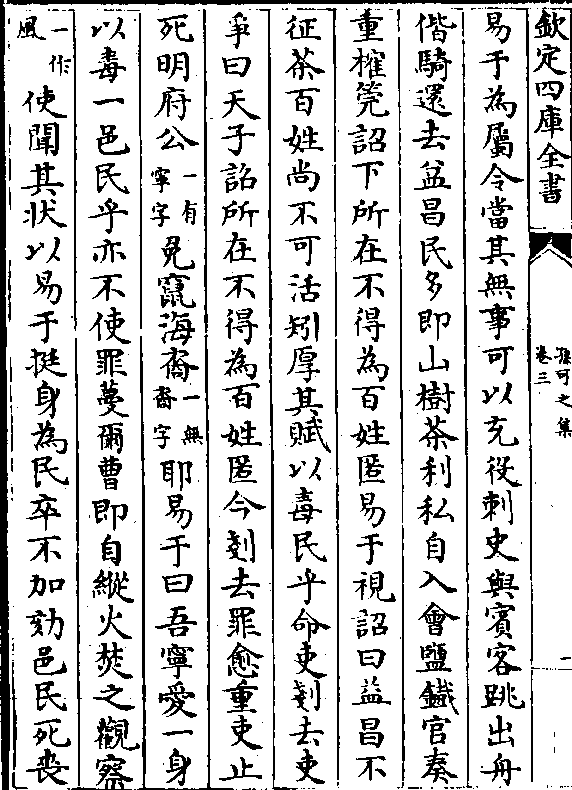 欽定四庫全書
孫可之集
卷三
一
易于為屬令當其無事可以充役刺史與賓客跳出舟
偕騎還去益昌民多即山樹茶利私自入會鹽鐵官奏
重榷筦詔下所在不得為百姓匿易于視詔曰益昌不
征茶百姓尚不可活矧厚其賦以毒民乎命吏剗去吏
爭曰天子詔所在不得為百姓匿今剗去罪愈重吏止
死明府公一有寧字免竄海裔一無裔字耶易于曰吾寧愛一身
以毒一邑民乎亦不使罪蔓爾曹即自縱火焚之觀察
一作風使聞其狀以易于挺身為民卒不加劾邑民死喪